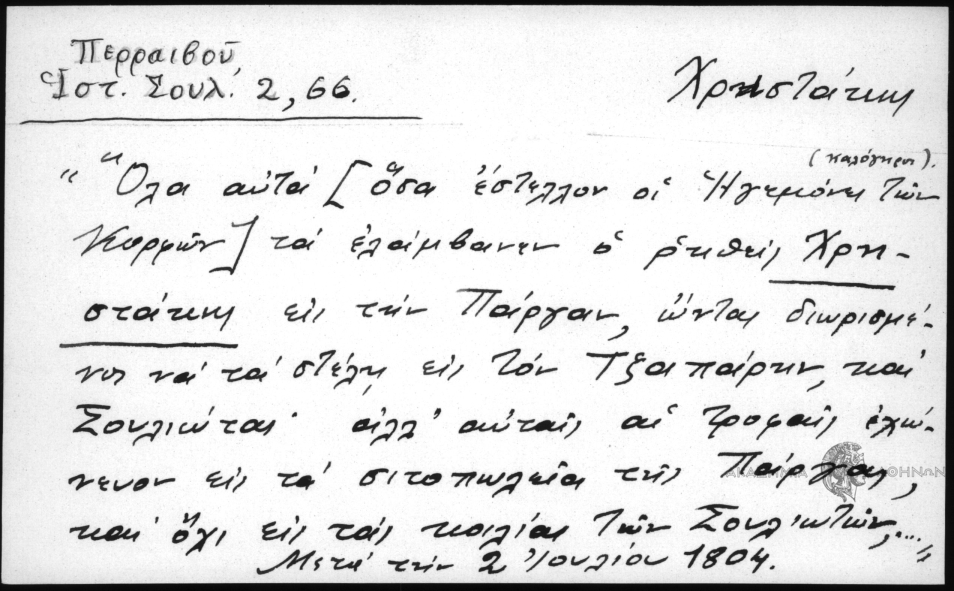 Περραιβοῦ,
Ἱστ. Σουλ. 2, 66.
Χρηστάκης
(καλόγηρος).
"Ὅλα αὐτά [ὅσα ἔστελλον οἱ Ἡγεμόνες τῶν
Κορφῶν] τά ἐλάμβανεν ὁ ῥηθείς Χρη-
στάκης εἰς τήν Πάργαν, ὤντας διωρισμέ-
νος νά τά στέλῃ εἰς τόν Τζαπάρην, καί
Σουλιώτας· ἀλλ' αὐταῖς αἱ τροφαῖς ἐχώ-
νευον εἰς τά σιτοπωλεῖα τῆς Πάργας,
καί ὄχι εἰς τάς κοιλίας τῶν Σουλιωτῶν,...."
Μετά τήν 2 Ἰουλίου 1804.
ΑΚΑΔΗΜΙΑ ΑΘΗΝΩΝ